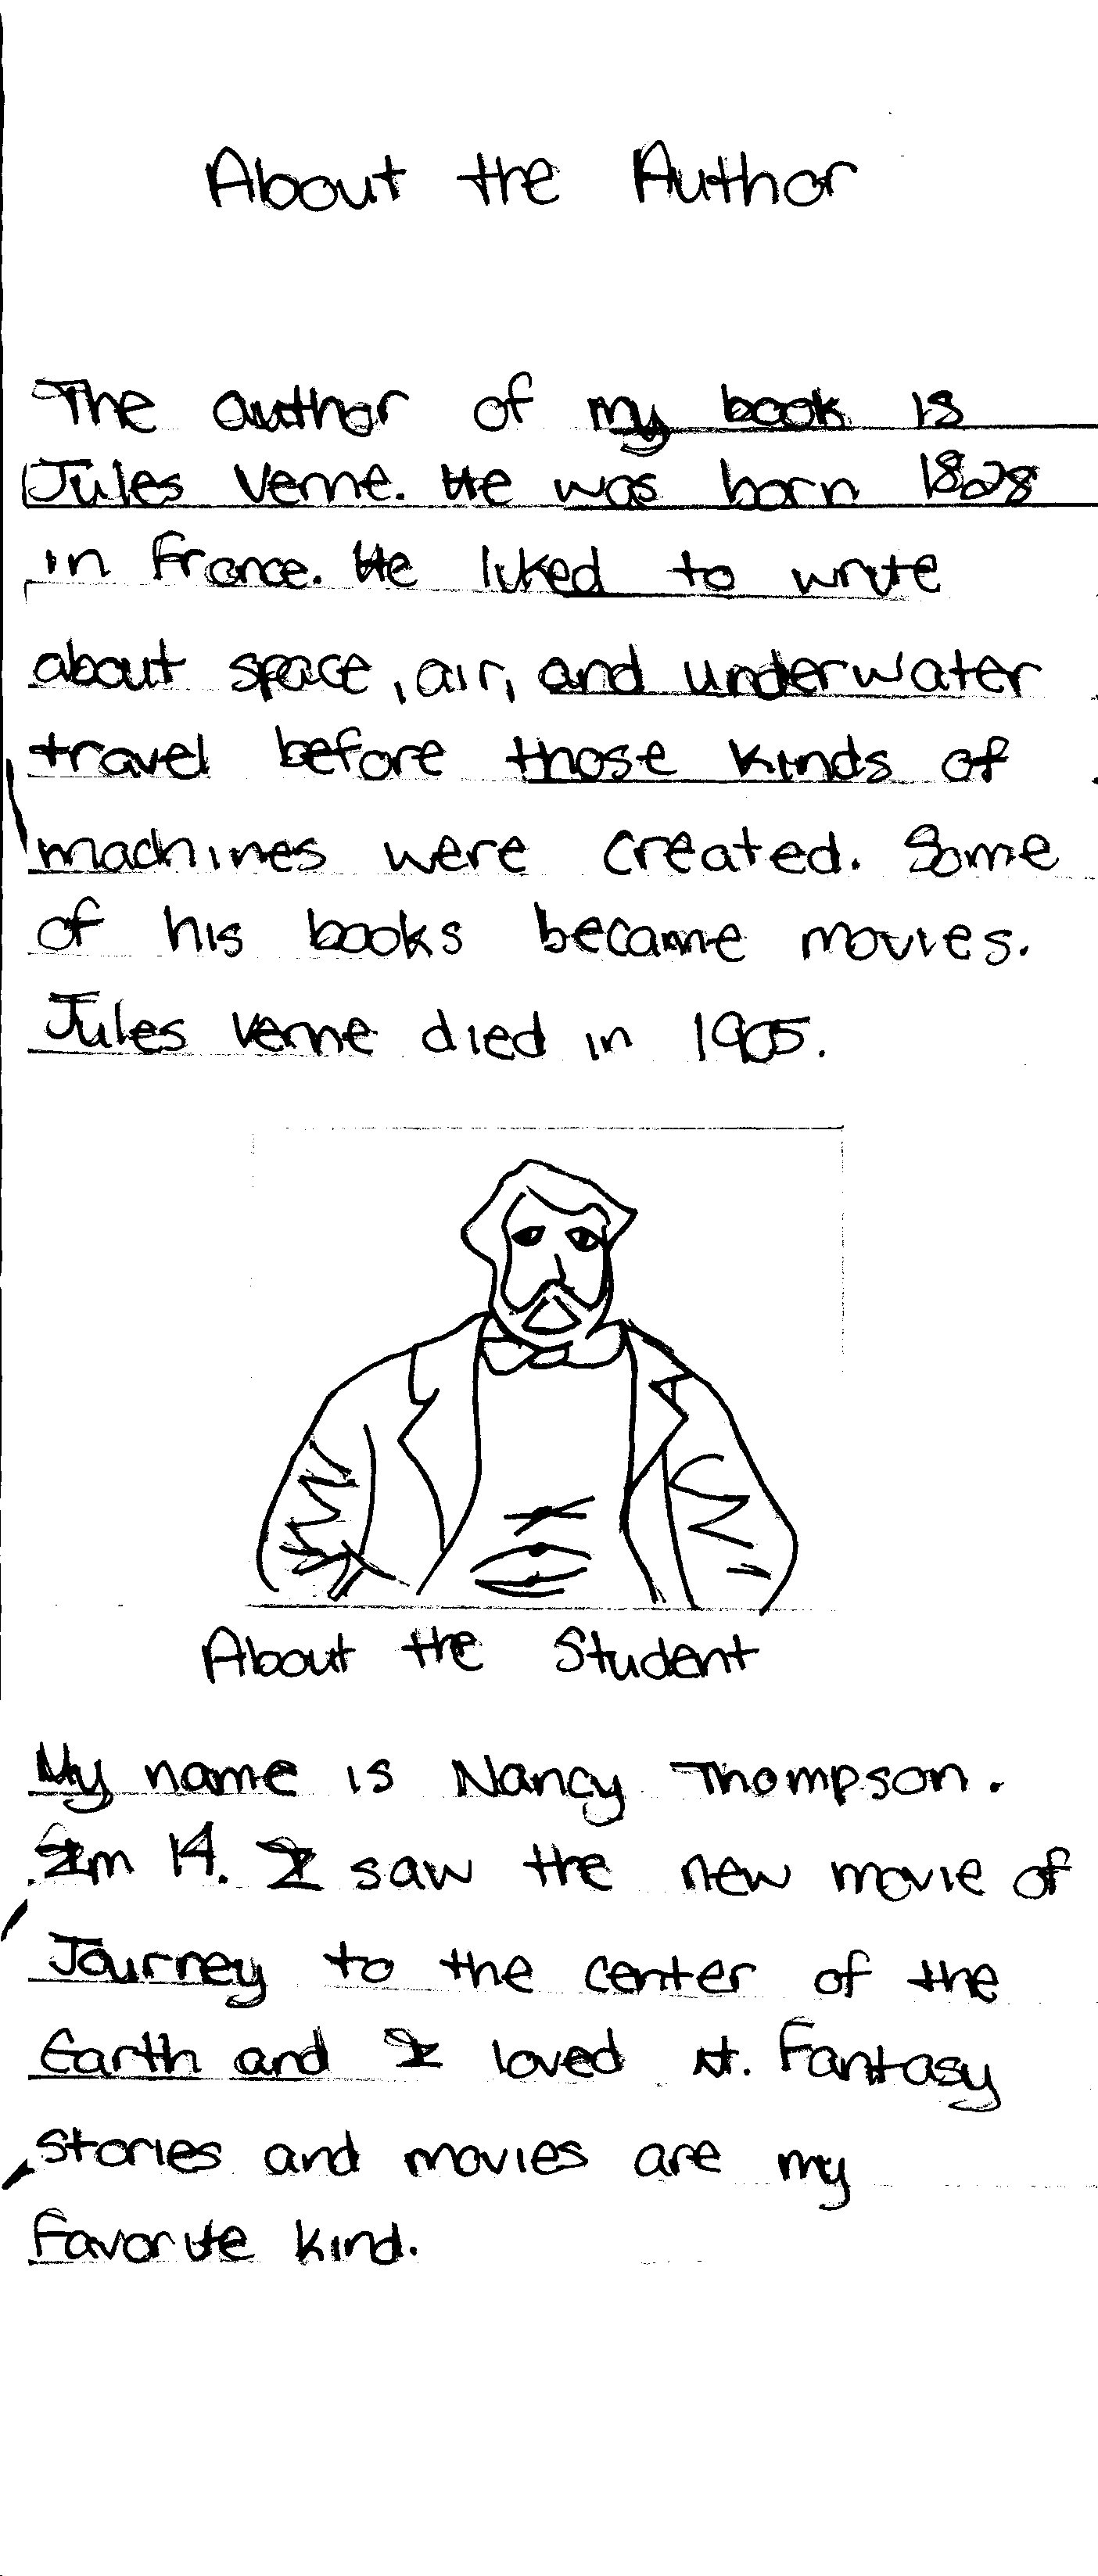 About the Author
The author of my book is
Jules Verne. He was born 1828
in France. He liked to write
about space, air, and underwater
travel before those kinds of
machines were created. Some
of his books became movies.
Jules Verne died in 1905.
About the Student
My name is Nancy Thompson.
Im 14. I saw the new movie of
Journey to the center of the
Earth and I loved it. Fantasy
stories and movies are my
favorite kind.